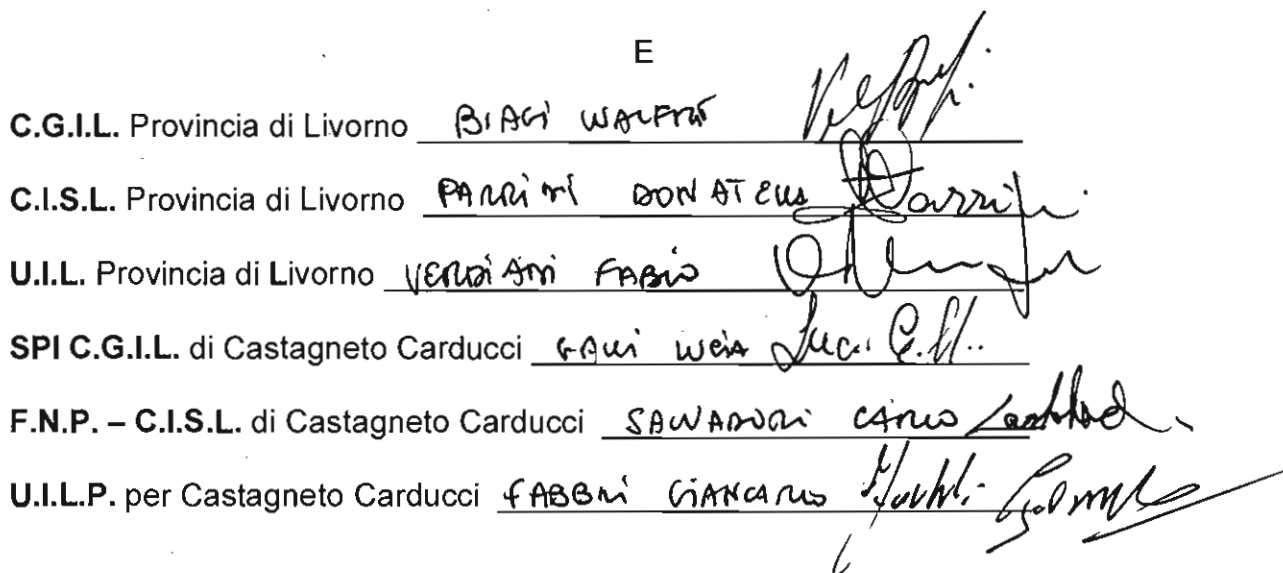 E
C.G.I.L. Provincia di Livorno BIAGI WALFRI
C.I.S.L. Provincia di Livorno PARRINI DONATELLA Parrini
U.I.L. Provincia di Livorno VERDIANI FABIO
SPI C.G.I.L. di Castagneto Carducci GALLI LUCIA
F.N.P. – C.I.S.L. di Castagneto Carducci SALVADORI CARLO
U.I.L.P. per Castagneto Carducci FABBRI GIANCARLO